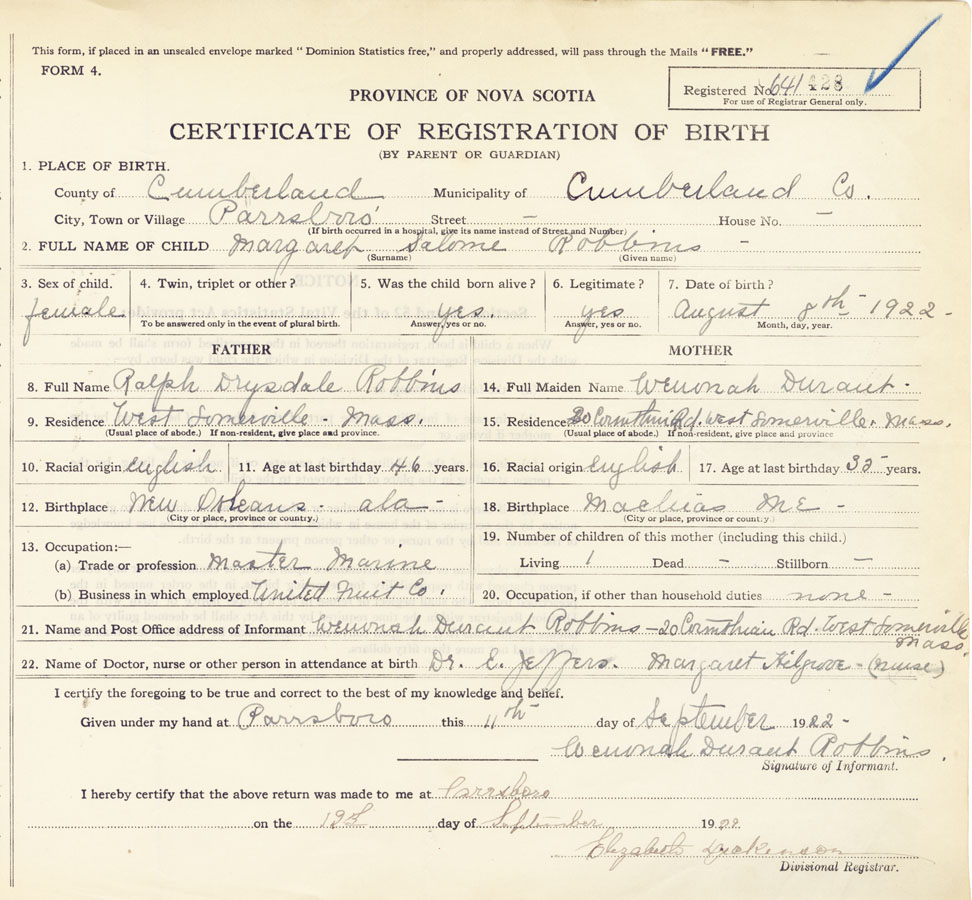 This form, if placed in an unsealed envelope marked " Dominion Statistics free," and properly addressed, will pass through the Mails "FREE."
FORM 4.
Registered No. 641428
For use of Registrar General only.
PROVINCE OF NOVA SCOTIA
CERTIFICATE OF REGISTRATION OF BIRTH
(BY PARENT OR GUARDIAN)
1. PLACE OF BIRTH.
County of Cumberland Municipality of Cumberland Co.
City, Town or Village Parrsboro Street — House No. —
(If birth occurred in a hospital, give its name instead of Street and Number)
2. FULL NAME OF CHILD Margaret Salome Robbins -
(Surname) (Given name)
3. Sex of child. 4. Twin, triplet or other? 5. Was the child born alive? 6. Legitimate? 7. Date of birth?
female yes. yes August 8th 1922 -
To be answered only in the event of plural birth. Answer, yes or no. Answer, yes or no. Month, day, year.
FATHER MOTHER
8. Full Name Ralph Drysdale Robbins 14. Full Maiden Name Wenonah Durant -
9. Residence West Somerville - Mass. 15. Residence 20 Corinthian Rd. West Somerville. Mass.
(Usual place of abode.) If non-resident, give place and province (Usual place of abode.) If non-resident, give place and province
10. Racial origin English 11. Age at last birthday 46 years. 16. Racial origin English 17. Age at last birthday 35 years.
12. Birthplace New Orleans - ala - 18. Birthplace Machias ME -
(City or place, province or country.) (City or place, province or country.)
19. Number of children of this mother (including this child.)
13. Occupation:—
(a) Trade or profession Master Marine Living 1 Dead — Stillborn —
(b) Business in which employed United Fruit Co. 20. Occupation, if other than household duties none -
21. Name and Post Office address of Informant Wenonah Durant Robbins - 20 Corinthian Rd. West Somerville
Mass.
22. Name of Doctor, nurse or other person in attendance at birth Dr. E. Jeffers. Margaret Hilgrove - (nurse)
I certify the foregoing to be true and correct to the best of my knowledge and belief.
Given under my hand at Parrsboro this 11th day of September 1922 -
Wenonah Durant Robbins.
Signature of Informant.
I hereby certify that the above return was made to me at Parrsboro
on the 12th day of September 1922
Elizabeth Dickinson
Divisional Registrar.